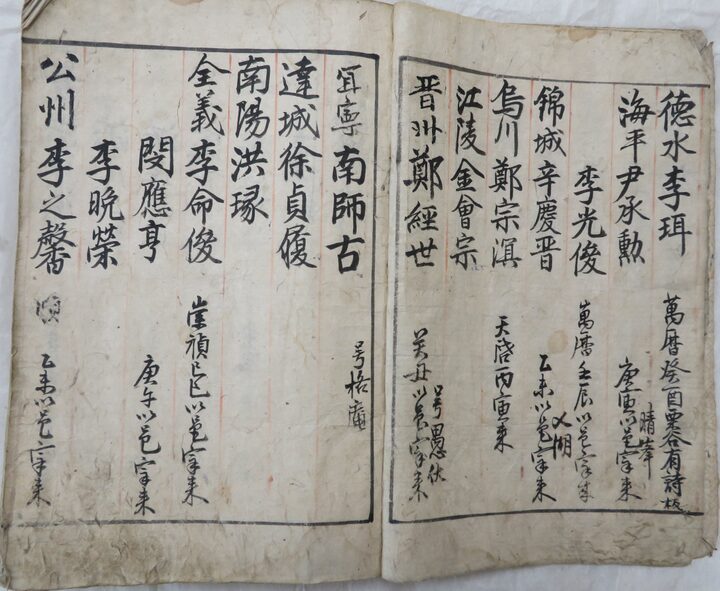 德水李珥 萬曆癸酉栗谷有詩板
海平尹承勲 庚寅以邑宰来 晴峯
李光俊 萬曆壬辰以邑宰来
錦城辛慶晋 乙未以邑宰来 湖
烏川鄭宗溟 天啓丙寅来
江陵金會宗
晋州鄭經世 癸丑以邑宰来 号愚伏
宜寧南師古 号格庵
達城徐貞履
南陽洪瑑
全義李命俊 崇禎己巳以邑宰来
閔應亨 庚午以邑宰来
李晩榮
公州李之馨 乙未以邑宰来